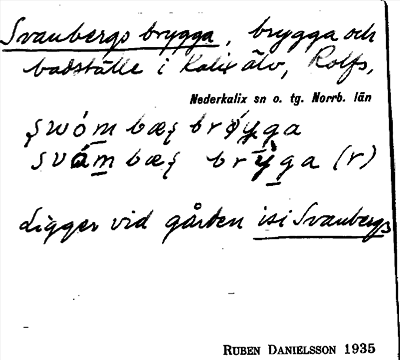 Svanbergs brygga, brygga och
badställe i Kalix älv, Rolfs,
Nederkalix sn o. tg. Norrb. län
swóm bæş brøyga
svám bæş brỳga (r)
Ligger vid gården isi Svanbergs
RUBEN DANIELSSON 1935